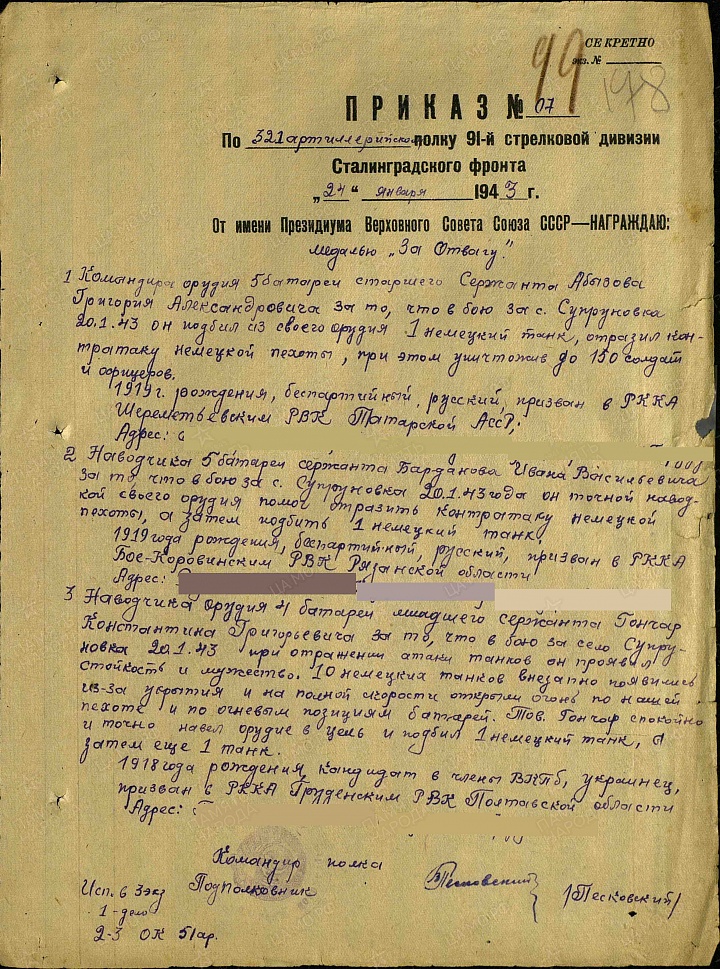 СЕКРЕТНО
экз. №
99
198
ПРИКАЗ № 07
По 321 артиллерийском полку 91-й стрелковой дивизии
Сталинградского фронта
„24" января 1943 г.
От имени Президиума Верховного Совета Союза СССР—НАГРАЖДАЮ:
медалью „За Отвагу"
1 Командира орудия 5 батареи старшего Сержанта Абызова
Григория Александровича за то, что в бою за с. Супруновка
20.1.43 он подбил из своего орудия 1 немецкий танк, отразил кон-
тратаку немецкой пехоты, при этом уничтожив до 150 солдат
и офицеров.
1919 г. рождения, беспартийный, русский, призван в РККА
Шереметьевским РВК Татарской АССР;
Адрес:
2 Наводчика 5 батареи сержанта Барданова Ивана Васильевича
за то, что в бою за с. Супруновка 20.1.43 года он точной навод-
кой своего орудия помог отразить контратаку немецкой
пехоты, а затем подбить 1 немецкий танк
1919 года рождения, беспартийный, русский, призван в РККА
Бое-Коровинским РВК Рязанской области
Адрес:
3 Наводчика орудия 4 батареи младшего сержанта Гончар
Константина Григорьевича за то, что в бою за село Супру-
новка 20.1.43 при отражении атаки танков он проявил
стойкость и мужество. 10 немецких танков внезапно появились
из-за укрытия и на полной скорости открыли огонь по нашей
пехоте и по огневым позициям батарей. Тов. Гончар спокойно
и точно навел орудие в цель и подбил 1 немецкий танк, а
затем еще 1 танк.
1918 года рождения, кандидат в члены ВКПб, украинец,
призван в РККА Груденским РВК Полтавской области
Адрес:
Командир полка
Подполковник Песковский /Песковский/
Исп. в 3 экз
1 - дело
2-3 ОК 51 ар.